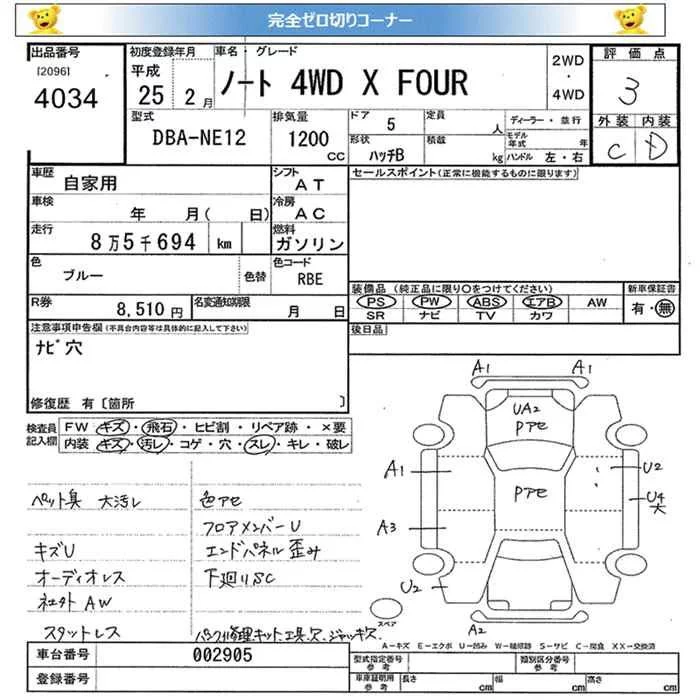 完全ゼロ切りコーナー
出品番号
[2096]
4034
初度登録年月
平成
25 2月
車名・グレード
ノート 4WD X FOUR
2WD
・
4WD
評価点
3
外装 内装
C D
型式
DBA-NE12
排気量
1200
CC
ドア 5
定員 人
ディーラー・並行
形状 ハッチB
積載 kg
モデル年式 年
ハンドル 左・右
車歴 自家用
シフト AT
セールスポイント(正常に機能するものに限ります)
車検 年 月( 日)
冷房 AC
走行 8万5千694 km
燃料 ガソリン
色 ブルー 色替
色コード RBE
装備品 (純正品に限り○をつけてください)
新車保証書
PS PW ABS エアB AW
有・無
SR ナビ TV カワ
R券 8,510円
名変通知期限 月 日
後日品
注意事項申告欄(不具合内容等は具体的に記入して下さい)
ナビ穴
修復歴 有〔箇所 〕
検査員記入欄
FW キズ・飛石・ヒビ割・リペア跡・×要
内装 キズ・汚レ・コゲ・穴・スレ・キレ・破レ
ペット臭 大汚レ
キズU
オーディオレス
社外AW
スタットレス
色アセ
フロアメンバーU
エンドパネル歪み
下廻りSC
パンク修理キット、工具欠、ジャッキ欠
A1 A1
UA2
Pアセ
A1
Pアセ
U2
U4
大
A3
U2
A2
スペア
A―キズ E―エクボ U―凹み W―補修跡 S―サビ C―腐食 XX―交換済
車台番号 002905
登録番号
型式指定番号 参考
類別区分番号 参考
車庫証明用 参考
長さ cm 幅 cm 高さ cm